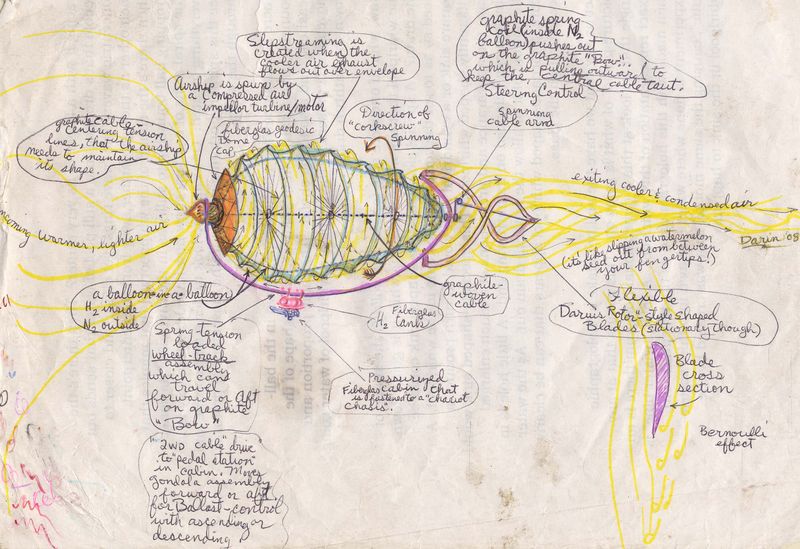 Slipstreaming is
created when the
cooler air exhaust
flows out over envelope
graphite spring
coil (inside N2
balloon) pushes out
on the graphite "Bow"...
which is pulling outward to
keep the central cable taut.
Steering Control
spinning
cable arnd
Airship is spun by
a Compressed air
impellor turbine/motor
Direction of
"corkscrew"
Spinning
graphite cable
centering tension
lines, that the airship
needs to maintain
its shape.
fiberglas geodesic
Dome
Cap
exiting cooler & condensed air
incoming warmer, lighter air
Darin '08
(it's like slipping a watermelon
seed out from between
your fingertips!)
a balloon-in-a-balloon
H2 inside
N2 outside
graphite-
woven
cable
Fiberglas
H2 tank
Flexible
Darius Rotor"-style shaped
Blades (stationary though)
Spring-tension
loaded
wheel-track
assembly
which can
travel
forward or aft
on graphite
"Bow"
Pressurized
Fiberglas cabin that
is fastened to a "chariot
chasis".
Blade
cross
section
Bernoulli
effect
"2WD cable" drive
to pedal station
in cabin. Moves
gondola assembly
forward or aft
for Ballast-control
with ascending or
descending